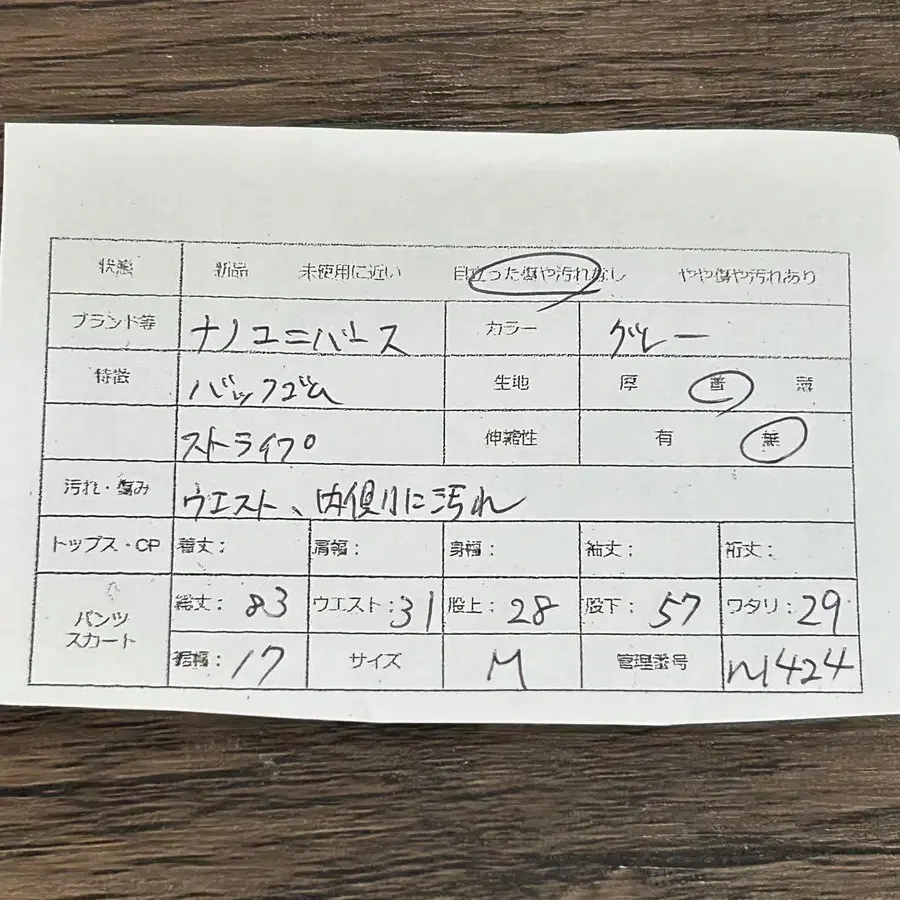 状態 新品 未使用に近い 目立った傷や汚れなし やや傷や汚れあり
ブランド等 ナノユニバース カラー グレー
特徴 バックゴム 生地 厚 普 薄
ストライプ 伸縮性 有 無
汚れ・傷み ウエスト、内側に汚れ
トップス・CP 着丈: 肩幅: 身幅: 袖丈: 裄丈:
パンツ スカート 総丈: 83 ウエスト: 31 股上: 28 股下: 57 ワタリ: 29
裾幅: 17 サイズ M 管理番号 m424